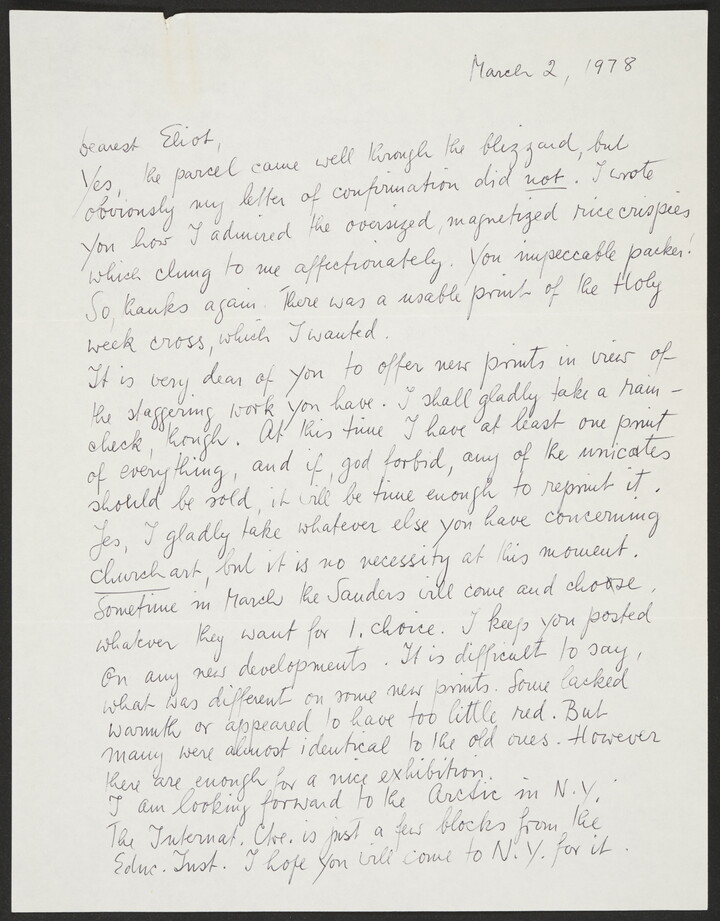 March 2, 1978
Dearest Eliot,
Yes, the parcel came well through the blizzard, but
obviously my letter of confirmation did not. I wrote
you how I admired the oversized, magnetized ricecrispies
which clung to me affectionately. You impeccable packer!
So, thanks again. There was a usable print of the Holy
week cross, which I wanted.
It is very dear of you to offer new prints in view of
the staggering work you have. I shall gladly take a rain-
check, though. At this time I have at least one print
of everything, and if, god forbid, any of the unicates
should be sold, it will be time enough to reprint it.
Yes, I gladly take whatever else you have concerning
church art, but it is no necessity at this moment.
Sometime in March the Sanders will come and choose,
whatever they want for 1. choice. I keep you posted
on any new developments. It is difficult to say,
what was different on some new prints. Some lacked
warmth or appeared to have too little red. But
many were almost identical to the old ones. However
there are enough for a nice exhibition.
I am looking forward to the Arctic in N.Y.
The Internat. Ctre. is just a few blocks from the
Educ. Inst. I hope you will come to N.Y. for it.